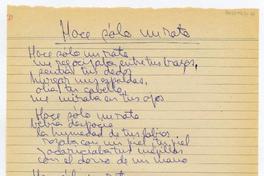 Hace sólo un rato
Hace sólo un rato
me regocijaba entre tus brazos,
sentía tus dedos
hurgar mis espaldas,
olías tu cabello,
me miraba en tus ojos
Hace sólo un rato
bebía despacio
la humedad de tus labios
rozaba con mi piel tu piel
y acariciaba tus mejillas
con el dorso de mi mano